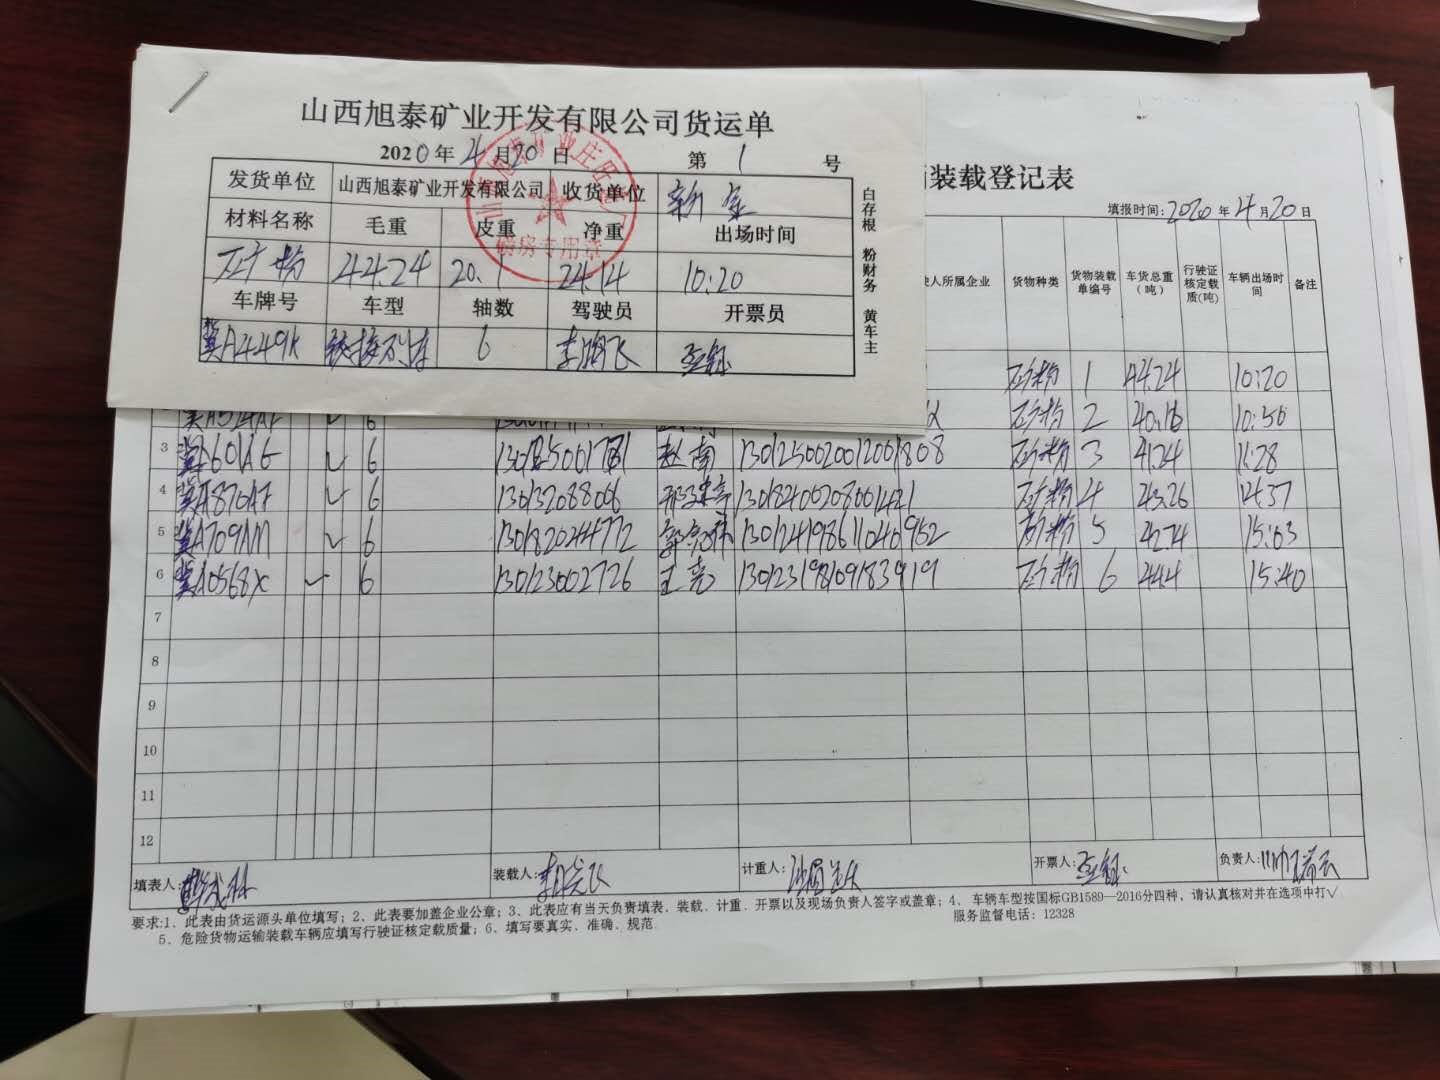 山西旭泰矿业开发有限公司货运单
2020年4月20日 第1号
发货单位 山西旭泰矿业开发有限公司 收货单位 新金
材料名称 毛重 皮重 净重 出场时间
矿粉 44.24 20.1 24.14 10:20
车牌号 车型 轴数 驾驶员 开票员
冀A449K 铰接列车 6 李鹏飞
白存根 粉财务 黄车主
磅房专用章
装载登记表
填报时间:2020年4月20日
人所属企业 货物种类 货物装载单编号 车货总重(吨) 行驶证核定载质(吨) 车辆出场时间 备注
矿粉 1 44.24 10:20
6 矿粉 2 40.16 10:50
3 冀A601AG ✓ 6 赵南 1301250020012001808 矿粉 3 41.24 11:28
4 冀A870AF ✓ 6 13013208806 矿粉 4 43.26 14:37
5 冀A709AM ✓ 6 130182044772 矿粉 5 42.74 15:03
6 冀A0568X ✓ 6 130123002726 王亮 130123198109183919 矿粉 6 44.4 15:40
7
8
9
10
11
12
填表人: 装载人: 计重人: 开票人: 负责人:
要求:1、此表由货运源头单位填写；2、此表要加盖企业公章；3、此表应有当天负责填表、装载、计重、开票以及现场负责人签字或盖章；4、车辆车型按国标GB1589—2016分四种，请认真核对并在选项中打√
5、危险货物运输装载车辆应填写行驶证核定载质量；6、填写要真实、准确、规范 服务监督电话：12328